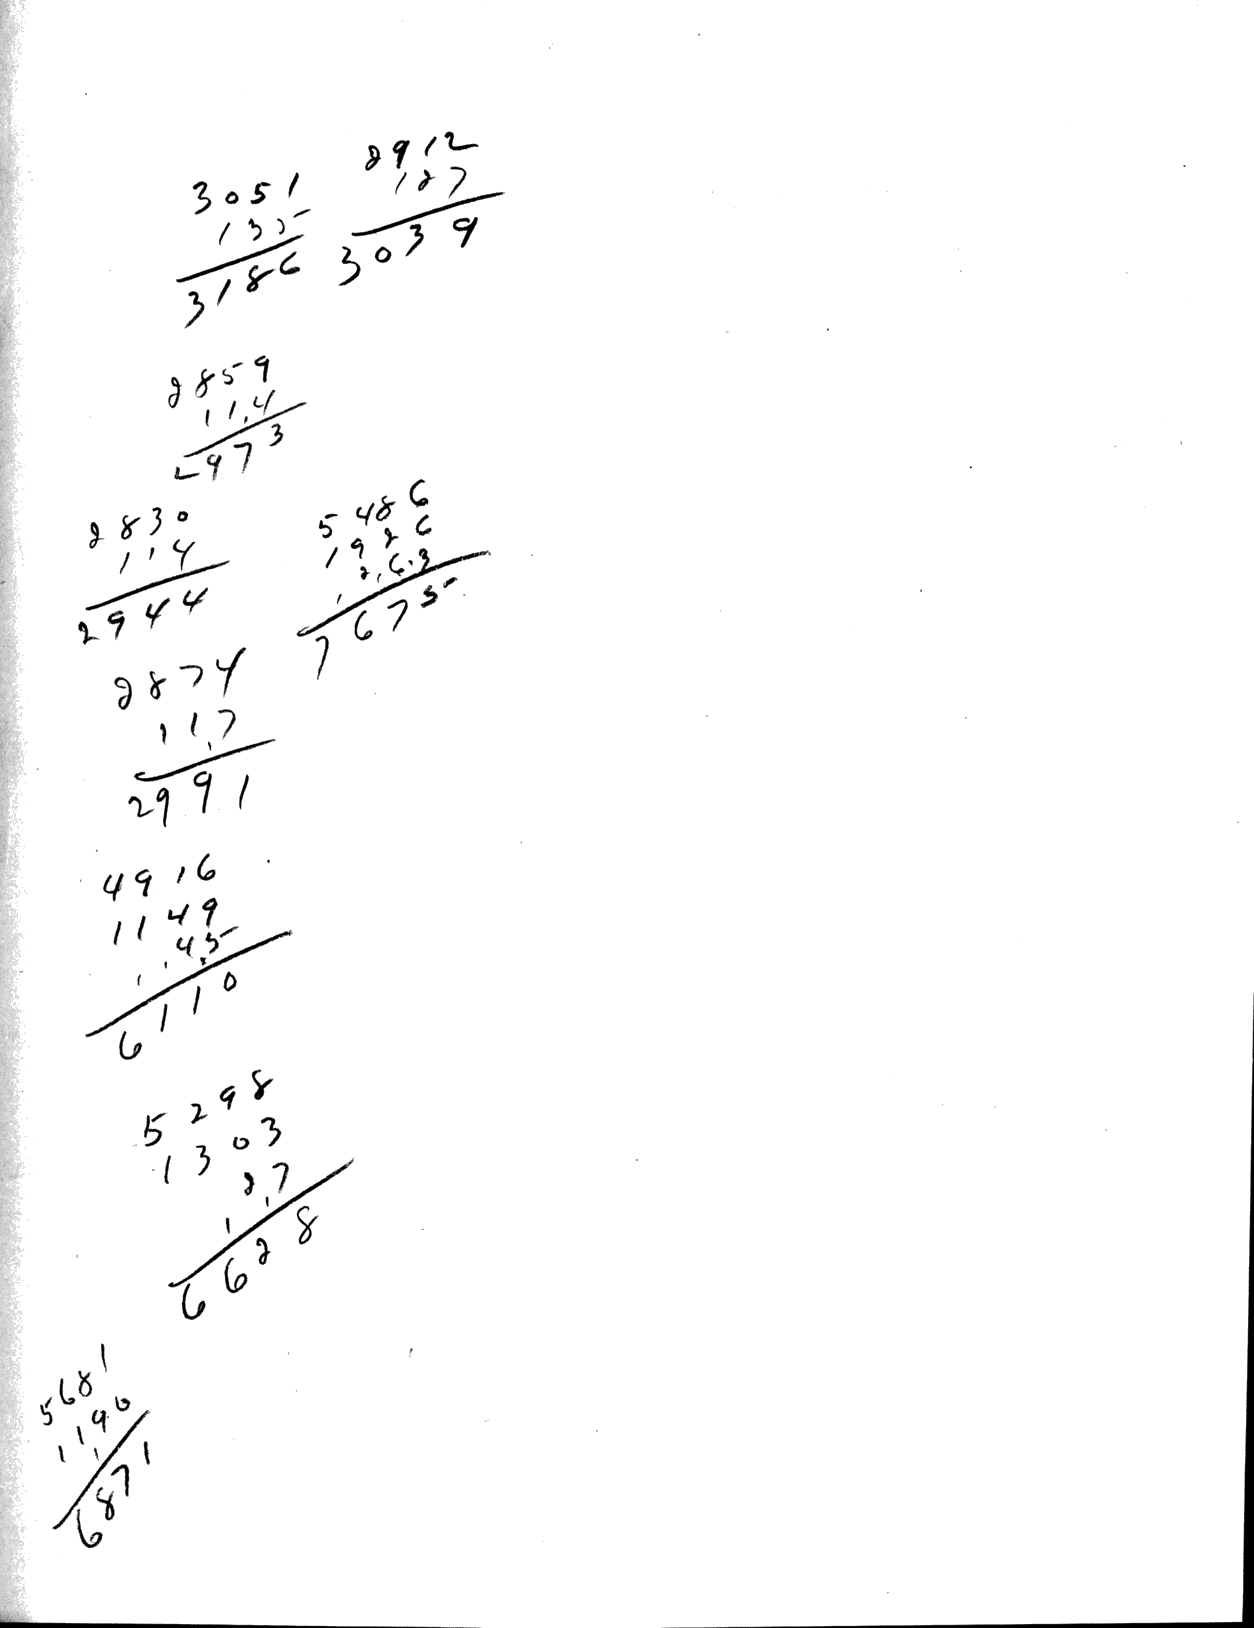 3051
135
3186
2912
127
3039
2859
114
2973
2830
114
2944
5486
1926
263
7675
2874
117
2991
4916
1149
45
6110
5298
1303
27
6628
5681
1190
6871